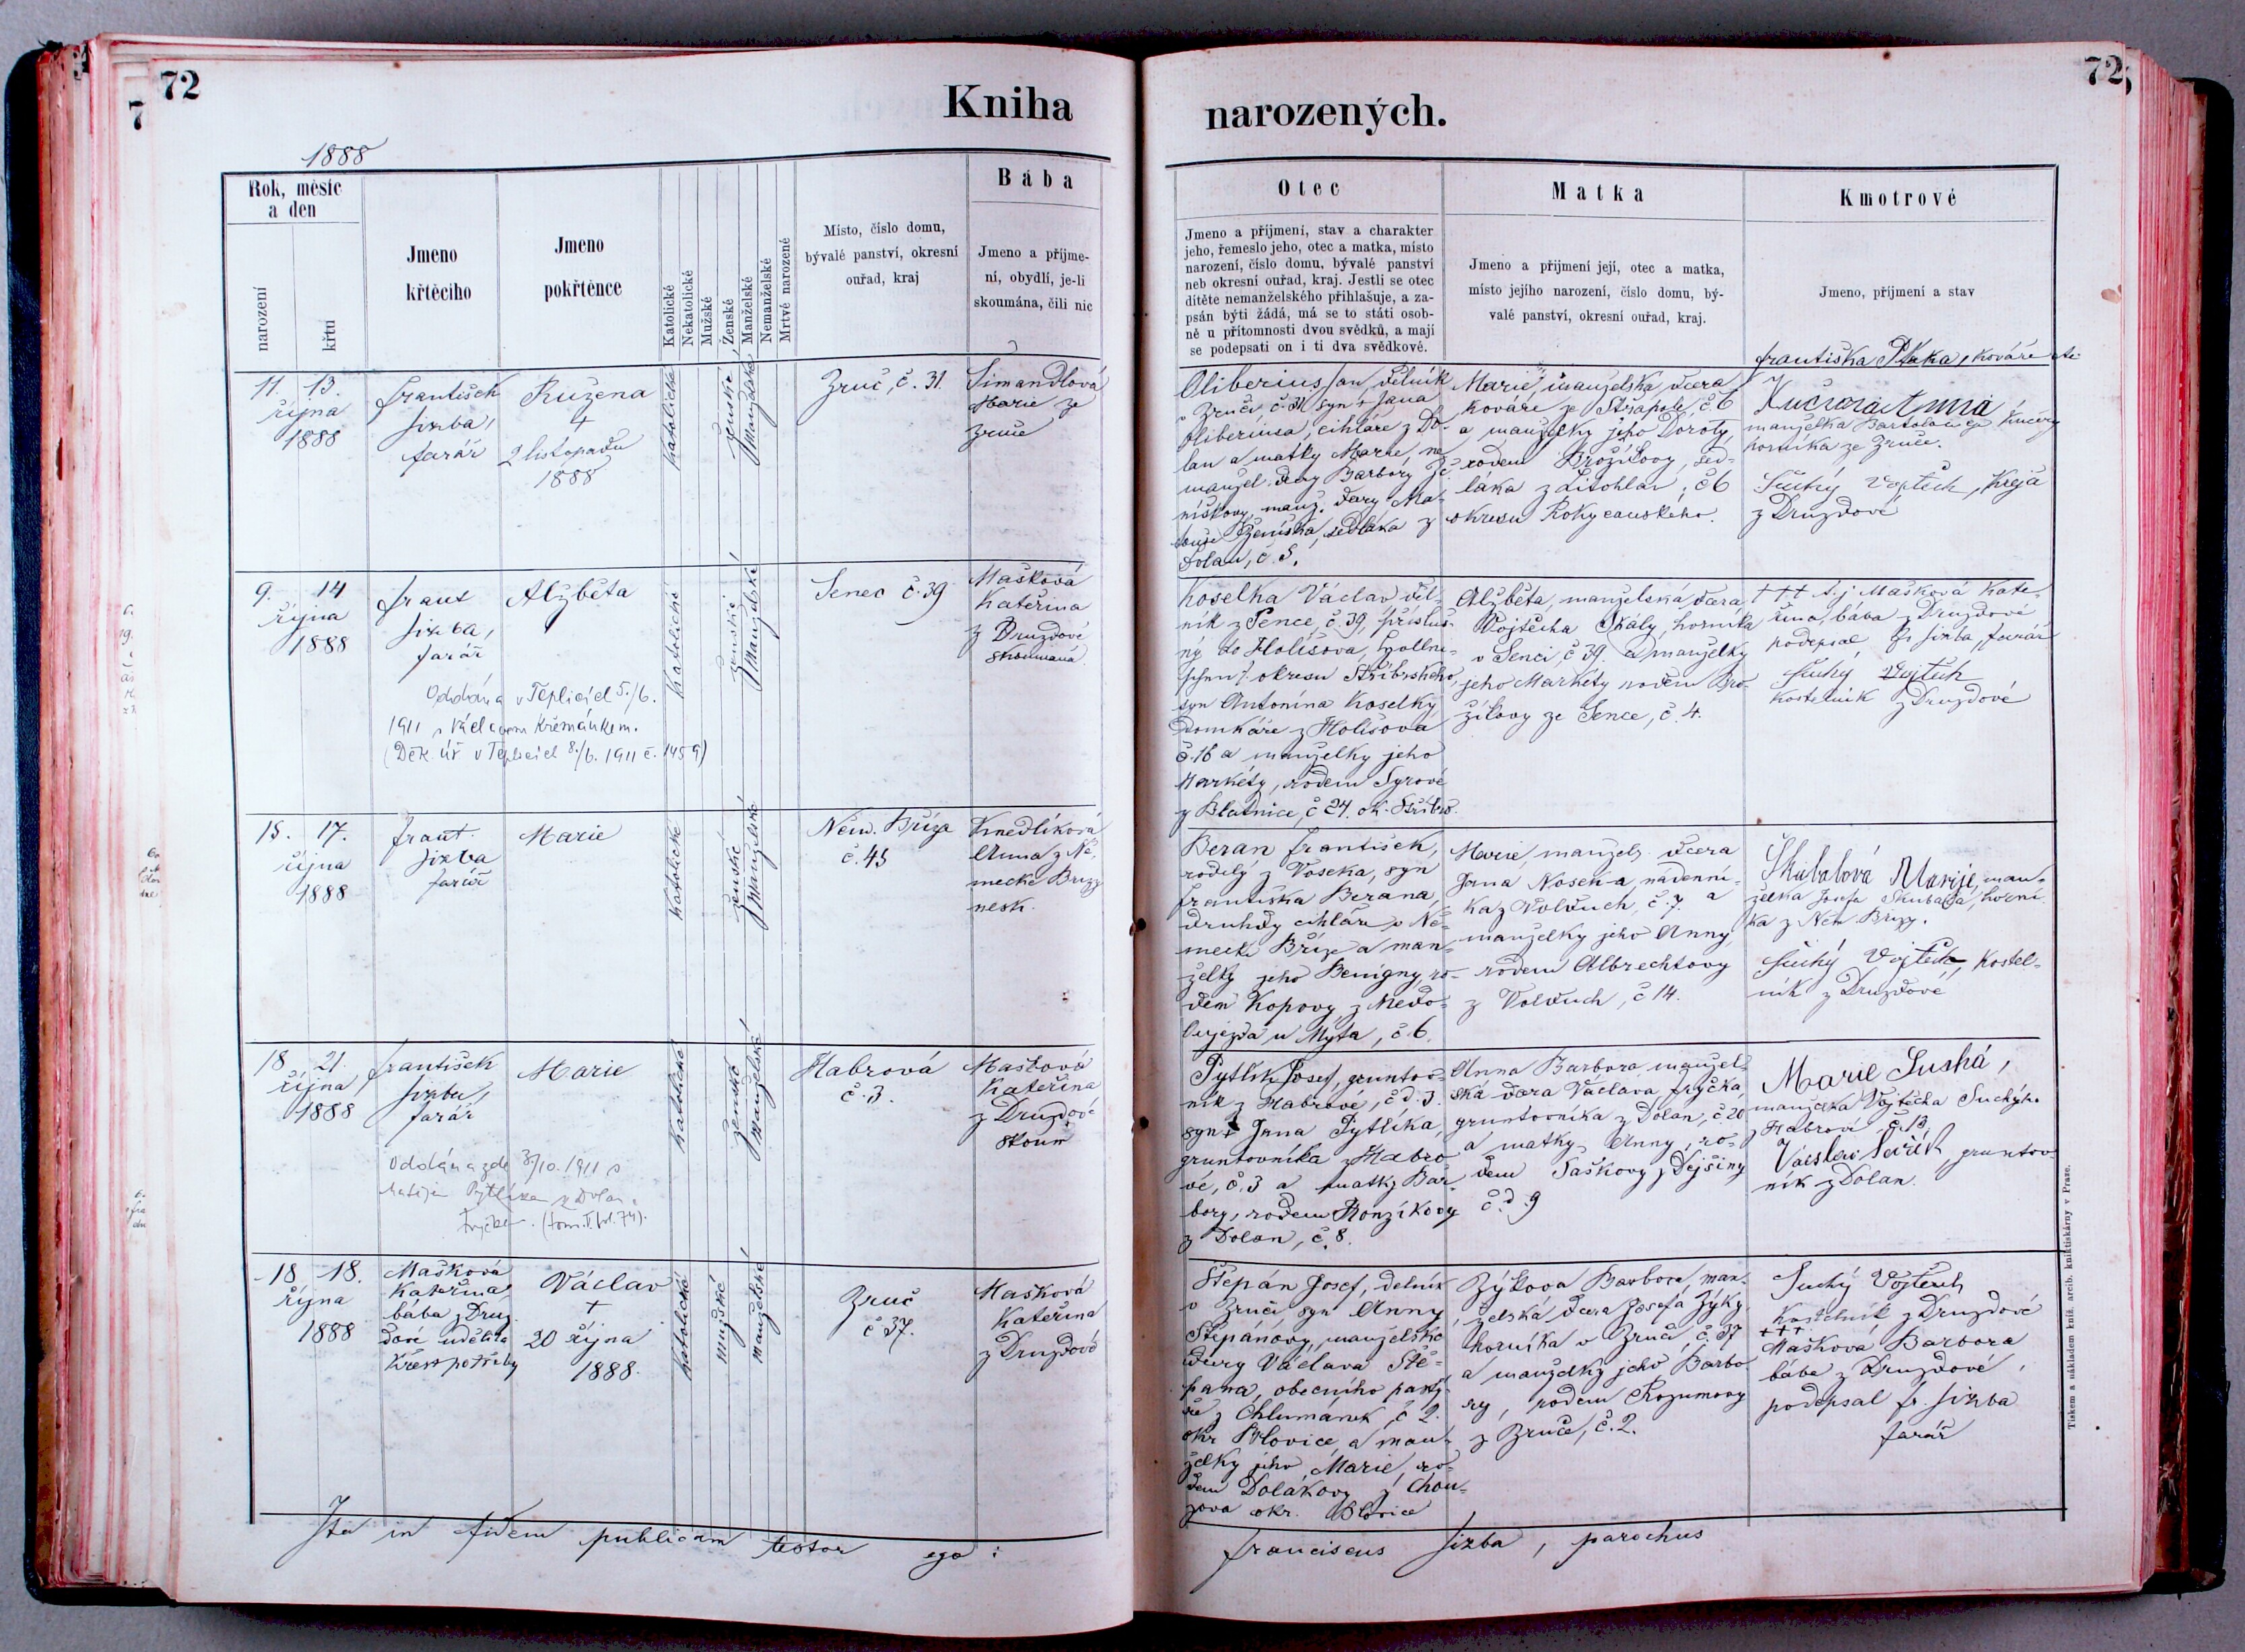 72
72
7
Kniha
narozených.
1888
Rok, měsíc
a den
narození
křtu
Jmeno
křtěcího
Jmeno
pokřtěnce
Katolické
Nekatolické
Mužské
Ženské
Manželské
Nemanželské
Mrtvě narozené
Místo, číslo domu,
bývalé panství, okresní
ouřad, kraj
Bába
Jmeno a přijme-
ní, obydlí, je-li
skoumána, čili nic
Otec
Jmeno a přijmení, stav a charakter
jeho, řemeslo jeho, otec a matka, místo
narození, číslo domu, bývalé panství
neb okresní ouřad, kraj. Jestli se otec
dítěte nemanželského přihlašuje, a za-
psán býti žádá, má se to státi osob-
ně u přítomnosti dvou svědků, a mají
se podepsati on i ti dva svědkové.
Matka
Jmeno a přijmení její, otec a matka,
místo jejího narození, číslo domu, bý-
valé panství, okresní ouřad, kraj.
Kmotrové
Jmeno, příjmení a stav
11. 13.
října
1888
František
Sizba,
farář
Růžena
2 listopadu
1888
katolické
ženské
manželské
Zruč, č. 31.
Šimandlová
Marie ze
Zruče
Oliberius Jan dělník
v Zruči č. 31 syn Jana
Oliberiusa, cihláře z Do-
lan a matky Marie, ne
manžel. dcery Barbory
níškovy, manž. dcery Ma-
sedláka z
Dolan, č. 5.
Františka Ptáka, kováře
Marie, manželská dcera
kováře ze Střapole, č 6
a manželky jeho Doroty,
rodem Brožíkovy, sed-
láka z Litohlav, č 6
okresu Rokycanského.
Kučerová Anna
manželka Bartoloměje Kučery
horníka ze Zruče.
Suchý Vojtěch, Krejčí
z Druzdové
9. 14
října
1888
Frant
Sizba,
farář
Alžběta
katolické
ženské
manželské
Senec č. 39
Mašková
Kateřina
z Druzdové
skoumaná.
Oddána v Teplicích 5./6.
1911 s Václavem Křemánkem.
(Děk. úř v Teplicích 8./6. 1911 č. 1459)
Koselka Václav děl
ník z Sence, č. 39, přísluš-
ný do Holišova,
okresu Stříbrského,
syn Antonína Koselky
domkáře z Holišova
č. 16 a manželky jeho
Markéty, rodem Syrové
z Blatnice, č 24. ok. Stříbro.
Alžběta, manželská dcera
Vojtěcha Skály, horníka
v Senci, č 39. a manželky
jeho Markéty rodem Bro-
žíkovy ze Sence, č. 4.
+++ t. j Mašková Kate-
řina, bába z Druzdové
podepsal Fr Sizba, farář
Suchý Vojtěch
kostelník z Druzdové
15. 17.
října
1888
Frant.
Sizba
farář
Marie
katolické
ženské
manželské
Něm. Bříza
č. 45
Knedlíková
Anna z Ně-
mecké Břízy
nesk.
Beran František,
rodilý z Voseka, syn
Františka Berana,
druhdy cihláře v Ně-
mecké Bříze a man-
želky jeho Benigny, ro-
dem Kopovy z Medo-
Oujezda u Mýta, č 6.
Marie manžels. dcera
Jana Noska, nádenní-
ka z Volduch, č. 7. a
manželky jeho Anny,
rodem Albrechtovy
z Volduch, č 14.
Skubalová Marije, man-
želka Josefa Skubala, horní-
ka z Něm Břízy.
Suchý Vojtěch, kostel-
ník z Druzdové
18. 21.
října
1888
František
Sizba,
farář
Marie
katolické
ženské
manželské
Habrová
č. 3.
Mašková
Kateřina
z Druzdové
skoum
Oddána zde 3/10. 1911 s
Matějem Pytlíkem z Dolan
(tom. V. fol. 74).
Pytlík Josef, gruntov-
ník z Habrové, č. d. 3.
syn Jana Pytlíka,
gruntovníka z Habro
vé, č. 3 a matky Bar-
bory, rodem Honzíkovy
z Dolan, č. 8.
Anna Barbora manžel-
ská dcera Václava Fryčka,
gruntovníka z Dolan, č. 20
a matky Anny, ro-
dem Saškovy z Dejšiny
č. d. 9
Marie Suchá,
manželka Vojtěcha Suchýho
z Habrové č. 13.
gruntov-
ník z Dolan.
18 18.
října
1888
Mašková
Kateřina
bába z Druz-
dové udělila
křest potřeby
Václav
+
20 října
1888.
katolické
mužské
manželské
Zruč
č 37.
Mašková
Kateřina
z Druzdové
Štěpán Josef, dělník
v Zruči syn Anny
Štěpánovy, manželské
dcery Václava Ště-
pana, obecního pastý-
ře z Chlumánek č 2.
okr Blovice, a man-
želky jeho Marie, ro-
dem Dolákovy z Chou-
zova okr. Blovice
Zýkova Barbora, man-
želská dcera Josefa Zýky
horníka v Zruči, č. 37
a manželky jeho Barbo
ry, rodem Rozumovy
z Zruče, č. 2.
Suchý Vojtěch
kostelník z Druzdové
+++
Mašková Barbora
bába z Druzdové,
podepsal fr. Sizba
farář
Ita in fidem publicam testor ego :
Franciscus Sizba, parochus
Tiskem a nákladem kníž. arcib. knihtiskárny v Praze.